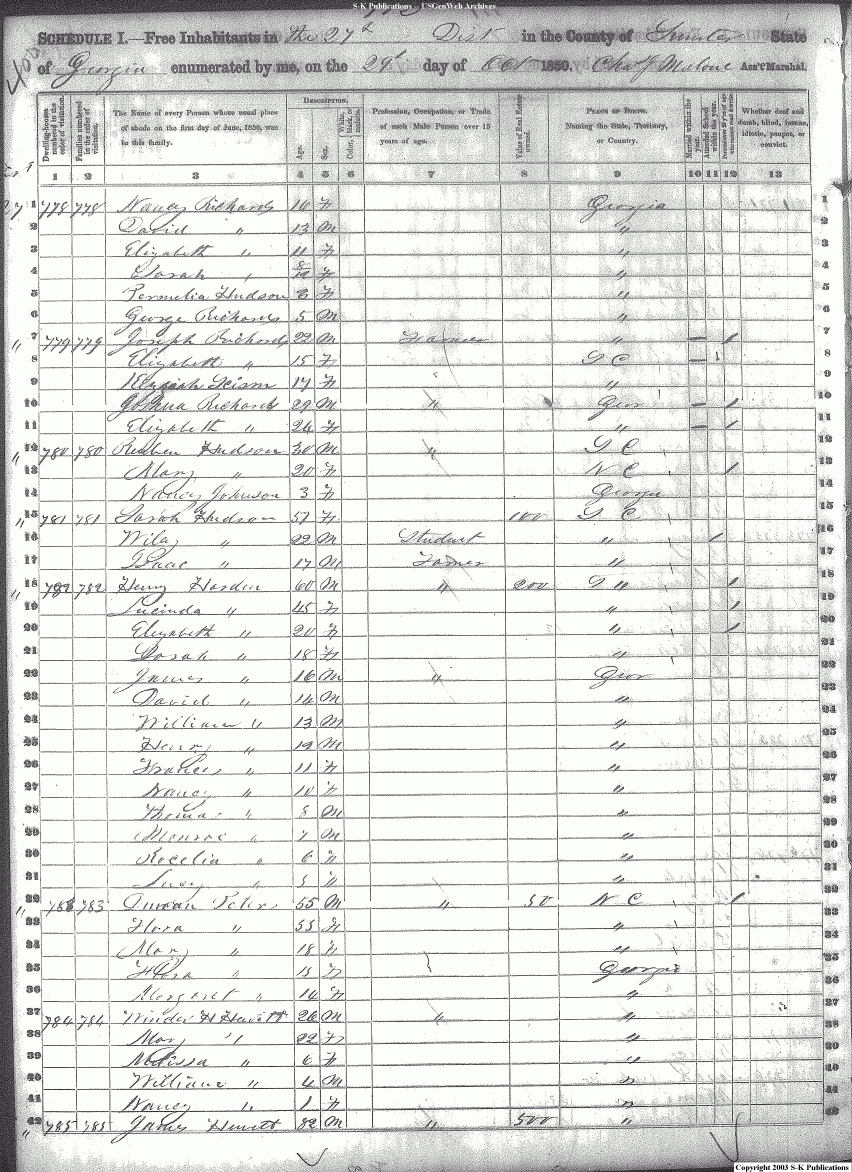 S-K Publications - USGenWeb Archives
SCHEDULE I.—Free Inhabitants in the 27th Dist in the County of Sumter State
of Georgia enumerated by me, on the 29th day of Oct 1850. Chas J Malone Ass't Marshal.
Dwelling-houses numbered in the order of visitation.
Families numbered in the order of visitation.
The Name of every Person whose usual place of abode on the first day of June, 1850, was in this family.
Description.
Age.
Sex.
White, Color, black, or mulatto.
Profession, Occupation, or Trade of each Male Person over 15 years of age.
Value of Real Estate owned.
Place of Birth. Naming the State, Territory, or Country.
Married within the year.
Attended School within the year.
Whether deaf and dumb, blind, insane, idiotic, pauper, or convict.
1 2 3 4 5 6 7 8 9 10 11 12 13
1 778 778 Nancy Richards 16 F Georgia 1
2 David " 13 M " 2
3 Elizabeth " 11 F " 3
4 Sarah " F " 4
5 Permelia Hudson F " 5
6 George Richards 5 M " 6
7 779 779 Joseph Richards 22 M Farmer " — 1 7
8 Elizabeth " 15 F S C — 1 8
9 17 F " 9
10 Joshua Richards 29 M " Geor — 1 10
11 Elizabeth " 24 F " — 1 11
12 780 780 Reuben Hudson 30 M " S C 12
13 Mary " 20 F N C 1 13
14 Nancy Johnson 3 F Georgia 14
15 781 781 Sarah Hudson 57 F 100 S C 15
16 Wiley " 22 M Student " 1 16
17 Isaac " 17 M Farmer " 17
18 782 782 Henry Harden 60 M " 200 S " 1 18
19 Lucinda " 45 F " 1 19
20 Elizabeth " 20 F " 1 20
21 Sarah " 18 F " 21
22 James " 16 M " Geor 22
23 David " 14 M " 23
24 William " 13 M " 24
25 Henry " 12 M " 25
26 Frances " 11 F " 26
27 Nancy " 10 F " 27
28 Thomas " 8 M " 28
29 Monroe " 7 M " 29
30 Rocelia " 6 F " 30
31 Lucy " 5 F " 31
32 783 783 Duncan Peters 55 M " 50 N C 1 32
33 Flora " 55 F " 33
34 Mary " 18 F " 34
35 Flora " 15 F Georgia 35
36 Margaret " 14 F " 36
37 784 784 Hewett 26 M " " 37
38 Mary " 22 F " 38
39 Melissa " 6 F " 39
40 William " 4 M " 40
41 Nancy " 1 F " 41
42 785 785 James Hewett 82 M " 500 " 42
Copyright 2003 S-K Publications